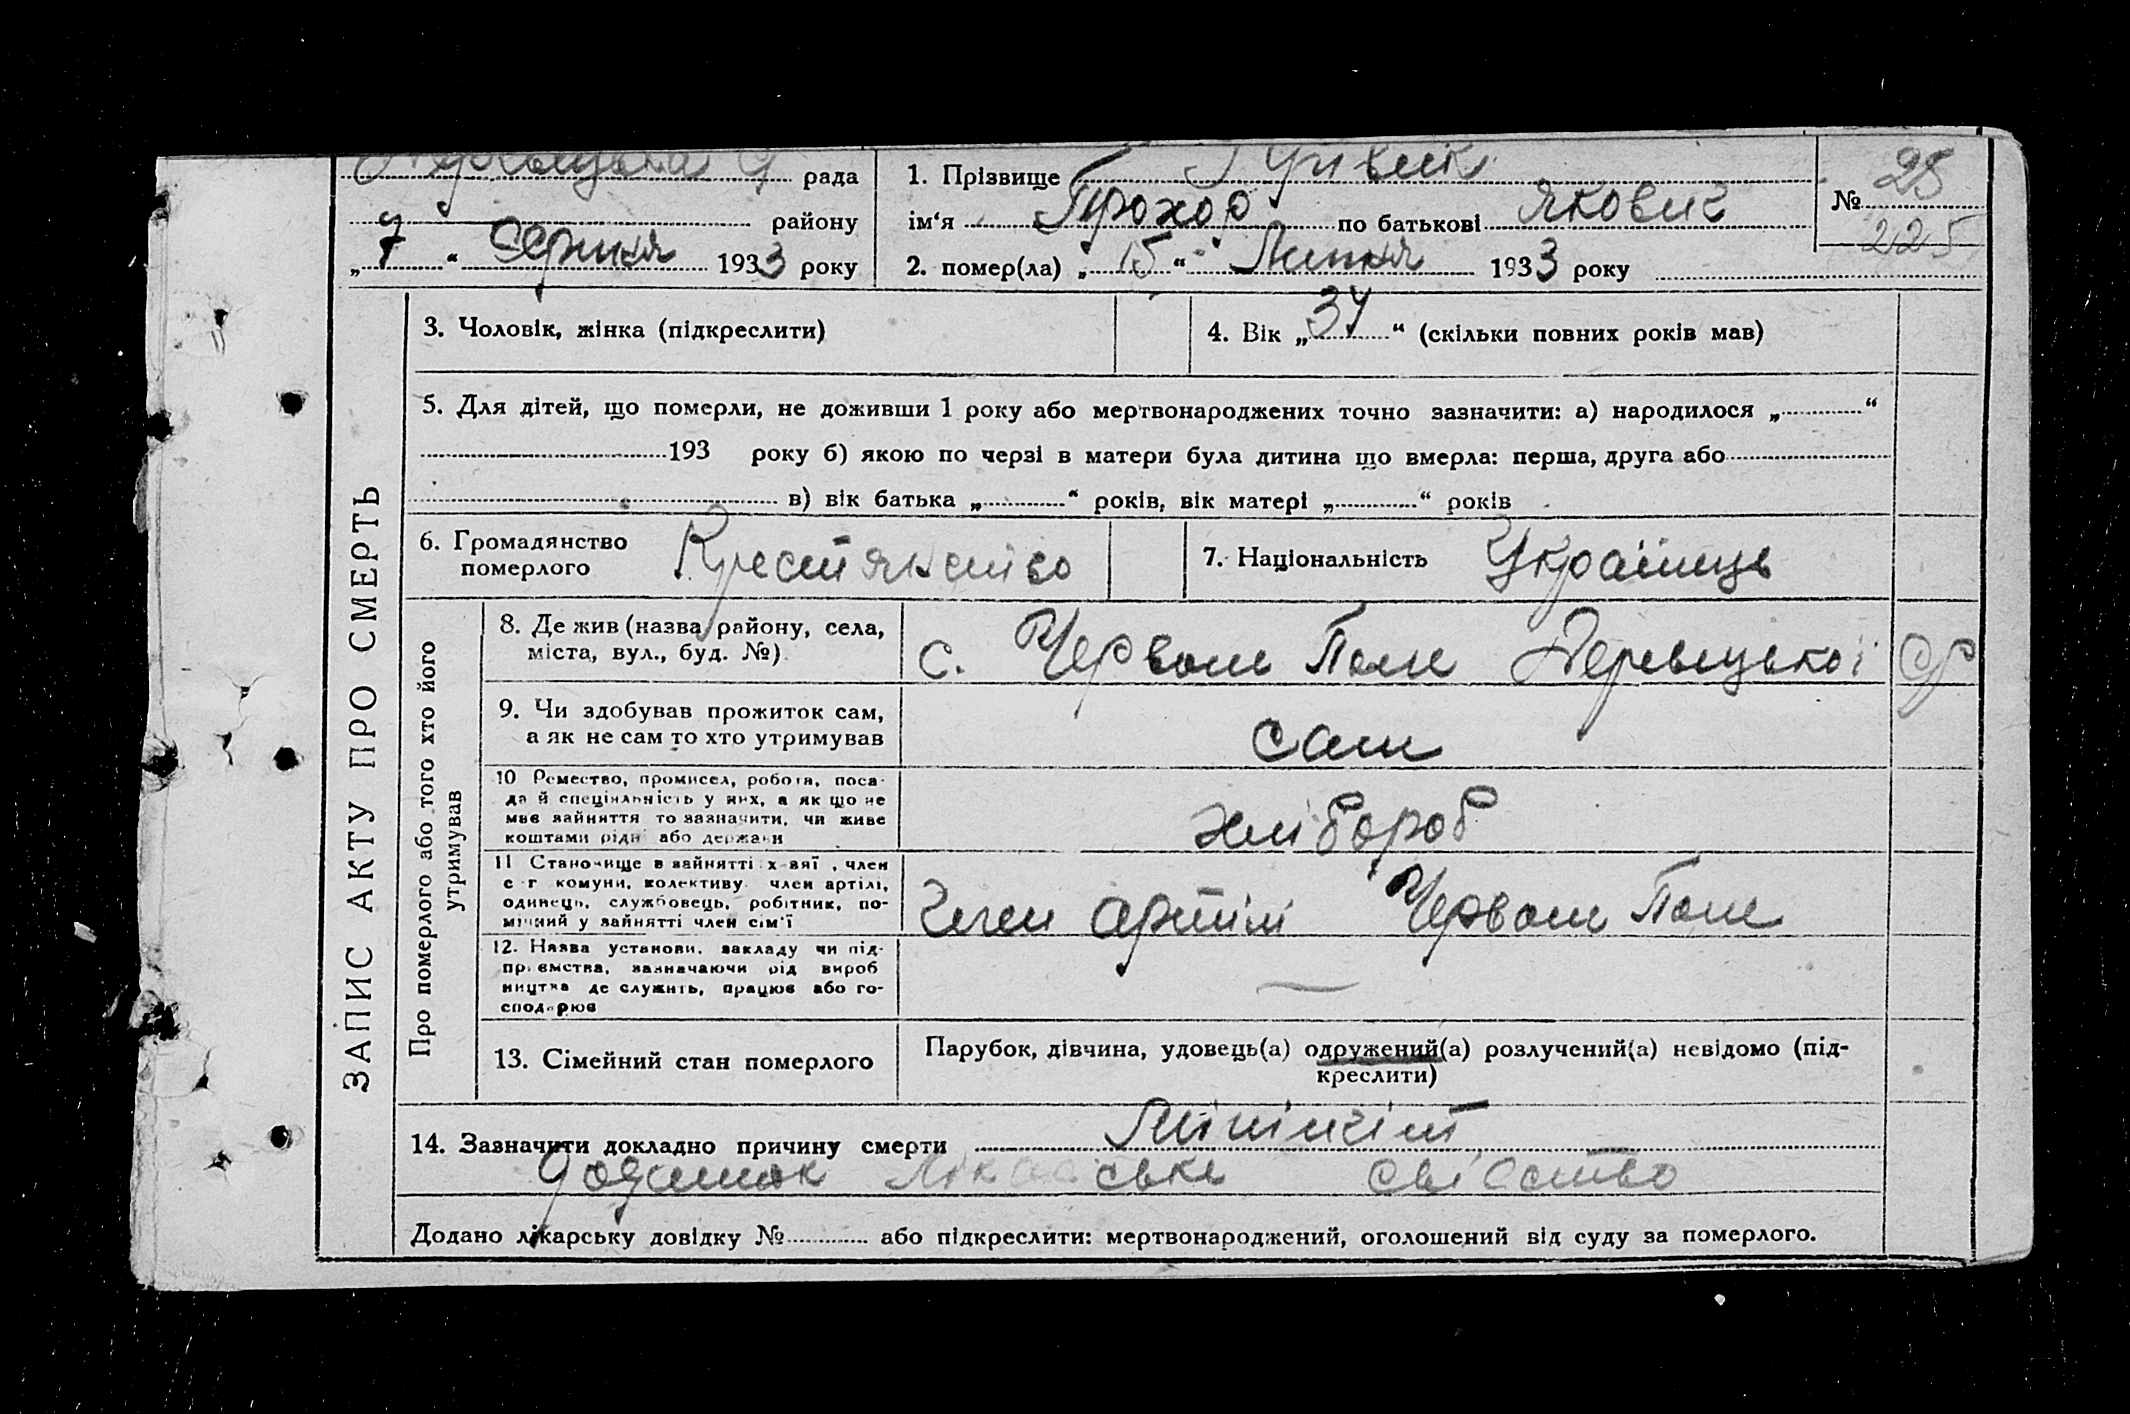 рада
району
„ 7 “ Серпня 1933 року
1. Прізвище
ім‘я Прохор по батькові Якович
2. помер(ла) „ 15 “ Липня 1933 року
№ 25
225
ЗАПИС АКТУ ПРО СМЕРТЬ
3. Чоловік, жінка (підкреслити)
4. Вік „ 34 “ (скільки повних років мав)
5. Для дітей, що померли, не доживши 1 року або мертвонароджених точно зазначити: а) народилося „ “
193 року б) якою по черзі в матери була дитина що вмерла: перша, друга або
в) вік батька „ “ років, вік матері „ “ років
6. Громадянство
померлого
Крестянство
7. Національність Українець
Про померлого або того хто його
утримував
8. Де жив (назва району, села,
міста, вул., буд. №)
с. Червоне Поле Деревицької СР
9. Чи здобував прожиток сам,
а як не сам то хто утримував
сам
10 Ремество, промисел, робота, поса-
да й спеціяльність у них, а як що не
мав зайняття то зазначити, чи живе
коштами рідні або держави
хлібороб
11 Становище в зайнятті: член
с-г комуни, колективу член артілі,
одинець, службовець, робітник, по-
мічний у зайнятті член сім'ї
Член артілі Червоне Поле
12. Назва установи, закладу чи під-
приємства, зазначаючи рід вироб
ництва де служить, працює або го-
сподарює
—
13. Сімейний стан померлого
Парубок, дівчина, удовець(а) одружений(а) розлучений(а) невідомо (під-
креслити)
14. Зазначити докладно причину смерти
додаток
Додано лікарську довідку № або підкреслити: мертвонароджений, оголошений від суду за померлого.